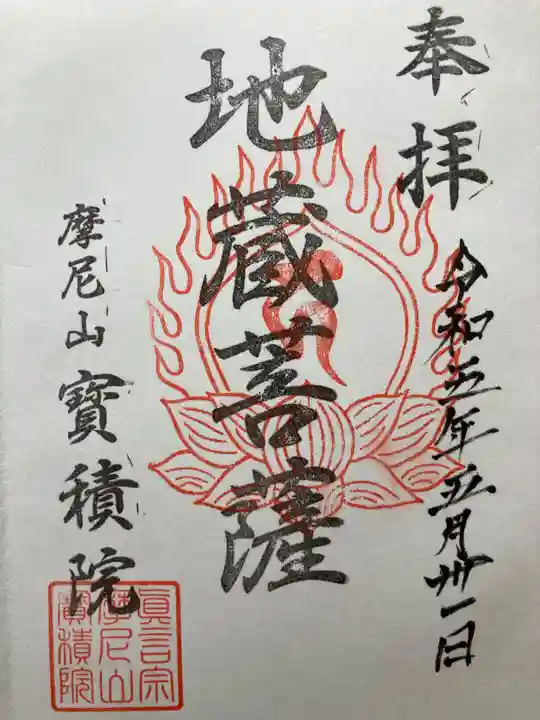 奉拝
令和五年五月卅一日
地蔵菩薩
摩尼山寳積院
眞言宗
摩尼山
寳積院